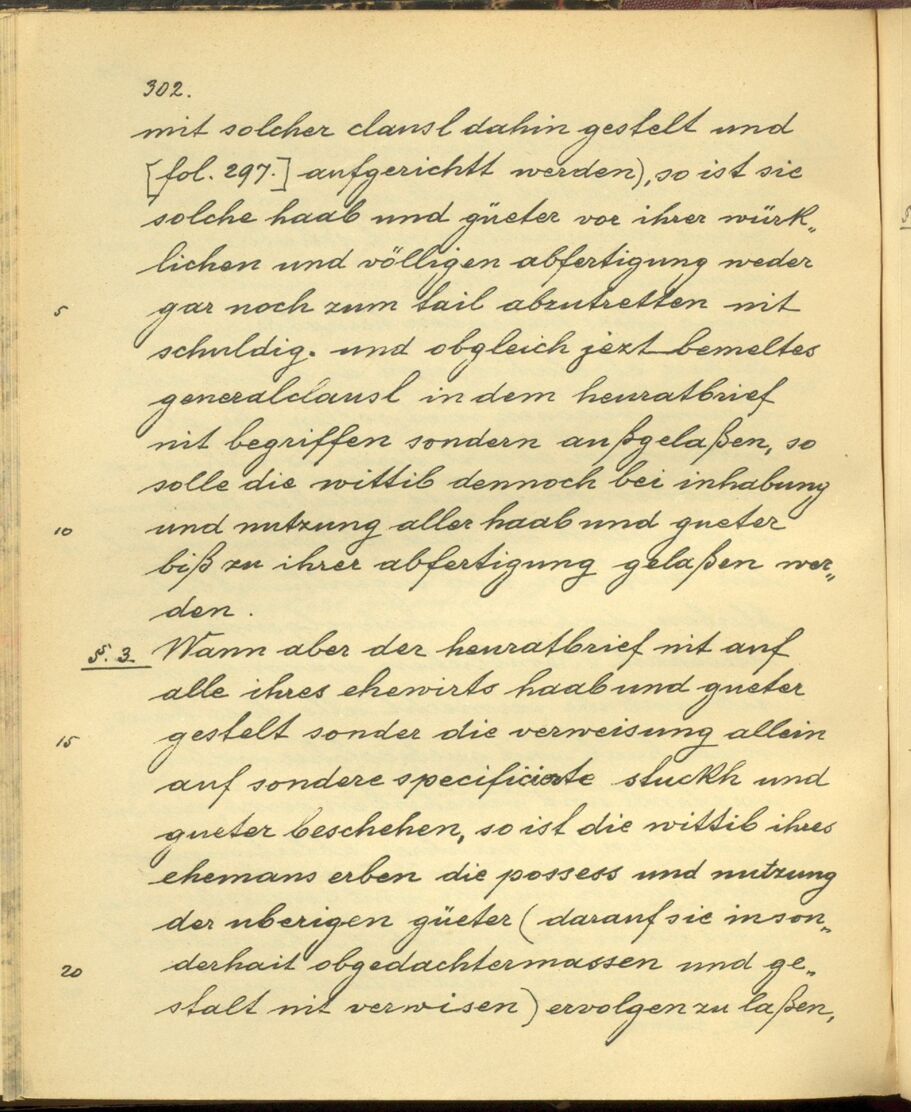 302.
mit solcher clausl dahin gestelt und
[fol. 297.] aufgerichtt werden), so ist sie
solche haab und güeter vor ihrer würk„
lichen und völligen abfertigung weder
5 gar noch zum tail abzutretten nit
schuldig. und obgleich jezt bemeltes
generalclausl in dem heuratbrief
nit begriffen sondern außgelaßen, so
solle die wittib dennoch bei inhabung
10 und nutzung aller haab und gueter
biß zu ihrer abfertigung gelaßen wer„
den.
§. 3 Wann aber der heuratbrief nit auf
alle ihres ehewirts haab und gueter
15 gestelt sonder die verweisung allein
auf sondere specificierte stuckh und
gueter beschehen, so ist die wittib ihres
ehemans erben die possess und nutzung
der uberigen güeter (darauf sie in son„
20 derhait obgedachtermassen und ge„
stalt nit verwisen) ervolgen zu laßen,